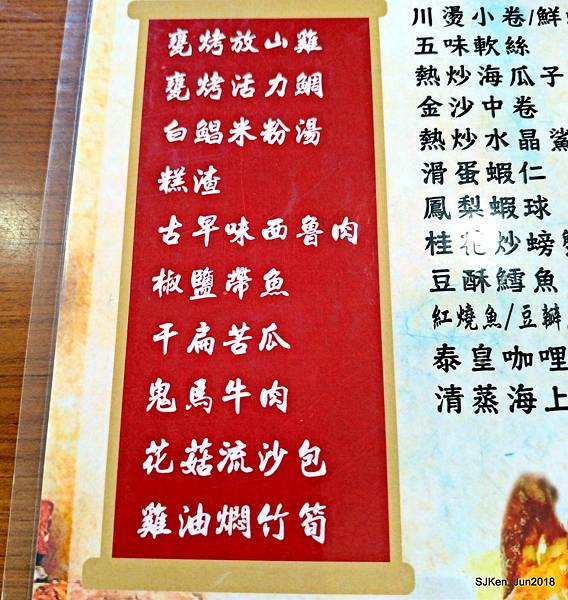 甕烤放山雞
甕烤活力鯛
白鯧米粉湯
糕渣
古早味西魯肉
椒鹽帶魚
干扁苦瓜
鬼馬牛肉
花菇流沙包
雞油燜竹筍
川燙小卷/鮮
五味軟絲
熱炒海瓜子
金沙中卷
熱炒水晶鯊
滑蛋蝦仁
鳳梨蝦球
桂花炒螃蟹
豆酥鱈魚
紅燒魚/豆瓣
泰皇咖哩
清蒸海上
SJKen, Jun2018